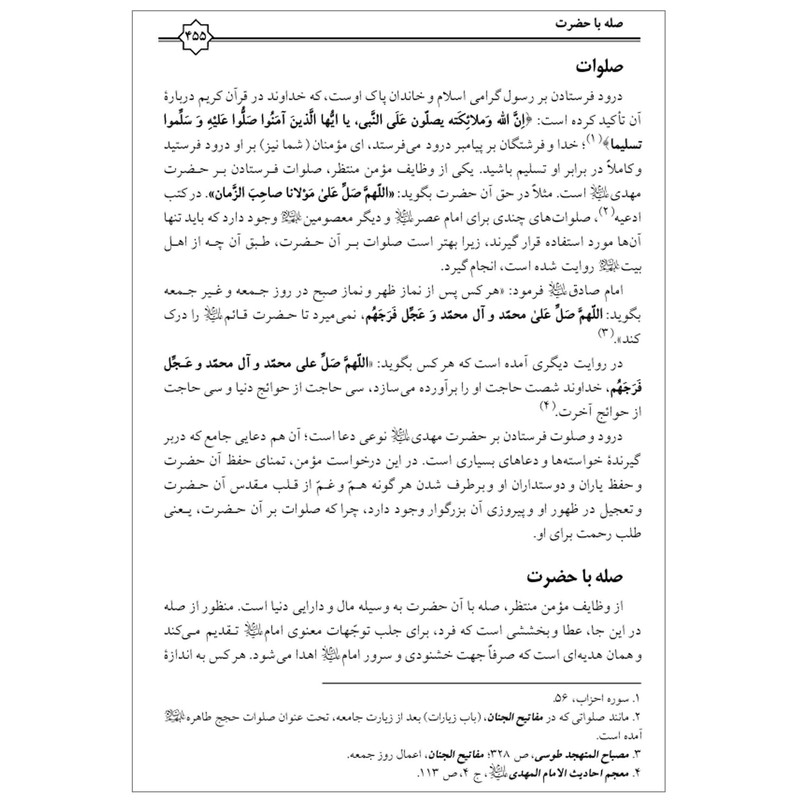 صله با حضرت
۴۵۵
صلوات
درود فرستادن بر رسول گرامی اسلام و خاندان پاک اوست، که خداوند در قرآن کریم دربارهٔ
آن تأکید کرده است: ﴿اِنَّ الله وَملائِکَته یصلّون عَلَی النَّبی، یا ایُّها الَّذینَ آمَنُوا صَلُّوا عَلَیْهِ وَ سَلِّموا
تسلیما﴾(۱)؛ خدا و فرشتگان بر پیامبر درود می‌فرستد، ای مؤمنان (شما نیز) بر او درود فرستید
و کاملاً در برابر او تسلیم باشید. یکی از وظایف مؤمن منتظر، صلوات فرستادن بر حضرت
مهدی علیه‌السلام است. مثلاً در حق آن حضرت بگوید: «اللّهمَّ صَلِّ عَلیٰ مَوْلانا صاحِبَ الزَّمان». در کتب
ادعیه(۲)، صلوات‌های چندی برای امام عصر علیه‌السلام و دیگر معصومین علیهم‌السلام وجود دارد که باید تنها
آن‌ها مورد استفاده قرار گیرند، زیرا بهتر است صلوات بر آن حضرت، طبق آن چه از اهل
بیت علیهم‌السلام روایت شده است، انجام گیرد.
امام صادق علیه‌السلام فرمود: «هر کس پس از نماز ظهر و نماز صبح در روز جمعه و غیر جمعه
بگوید: اللّهمَّ صَلِّ عَلیٰ محمّد و آل محمّد وَ عَجِّل فَرَجَهُم، نمی‌میرد تا حضرت قائم علیه‌السلام را درک
کند».(۳)
در روایت دیگری آمده است که هر کس بگوید: «اللّهمَّ صَلِّ علی محمّد و آل محمّد و عَجِّل
فَرَجَهُم، خداوند شصت حاجت او را برآورده می‌سازد، سی حاجت از حوائج دنیا و سی حاجت
از حوائج آخرت.(۴)
درود و صلوت فرستادن بر حضرت مهدی علیه‌السلام نوعی دعا است؛ آن هم دعایی جامع که دربر
گیرندهٔ خواسته‌ها و دعاهای بسیاری است. در این درخواست مؤمن، تمنای حفظ آن حضرت
و حفظ یاران و دوستداران او و برطرف شدن هر گونه همّ و غمّ از قلب مقدس آن حضرت
و تعجیل در ظهور او و پیروزی آن بزرگوار وجود دارد، چرا که صلوات بر آن حضرت، یعنی
طلب رحمت برای او.
صله با حضرت
از وظایف مؤمن منتظر، صله با آن حضرت به وسیله مال و دارایی دنیا است. منظور از صله
در این جا، عطا و بخششی است که فرد، برای جلب توجّهات معنوی امام علیه‌السلام تقدیم می‌کند
و همان هدیه‌ای است که صرفاً جهت خشنودی و سرور امام علیه‌السلام اهدا می‌شود. هر کس به اندازهٔ
۱. سوره احزاب، ۵۶.
۲. مانند صلواتی که در مفاتیح الجنان، (باب زیارات) بعد از زیارت جامعه، تحت عنوان صلوات حجج طاهره علیهم‌السلام
آمده است.
۳. مصباح المتهجد طوسی، ص ۳۲۸؛ مفاتیح الجنان، اعمال روز جمعه.
۴. معجم احادیث الامام المهدی علیه‌السلام، ج ۴، ص ۱۱۳.